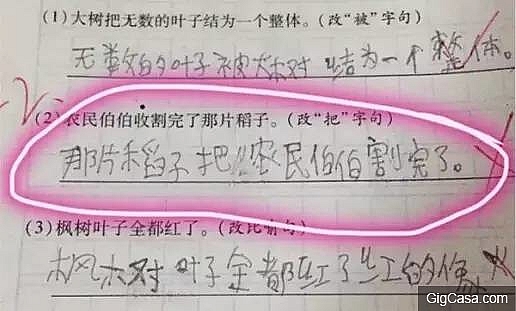 (1)大树把无数的叶子结为一个整体。(改“被”字句)
无数的叶子被大树结为一个整体。
-2.
(2)农民伯伯收割完了那片稻子。(改“把”字句)
那片稻子把农民伯伯割完了。
(3)枫树叶子全都红了。(改比喻句)
枫树叶子全都红了红的像
GigCasa.com